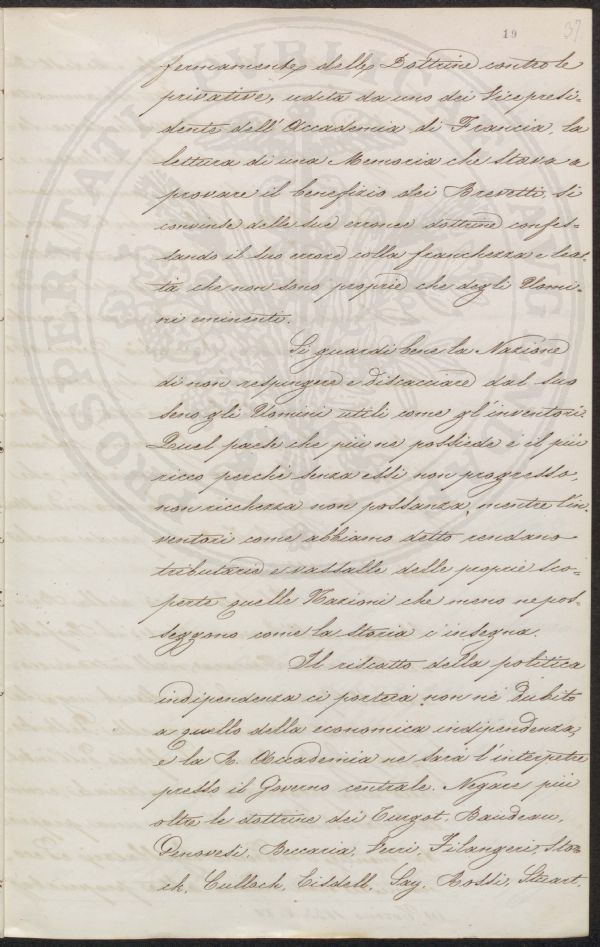 19 37
fermamente delle Dottrine contro le
privative, udita da uno dei Vicepresi=
dente dell'Accademia di Francia, la
lettura di una Memoria che stava a
provare il benefizio dei Brevetti, si
convinse delle sue erronee dottrine confes=
sando il suo errore colla franchezza e leal=
tà che non sono proprie che degli Uomi=
ni eminenti.
Si guardi bene la Nazione
di non respingere e discacciare dal suo
seno gli Uomini utili come gl'inventori.
Quel paese che più ne possiede è il più
ricco perchè senza essi non progresso,
non ricchezza non possanza, mentre l'in=
ventori come abbiamo detto rendano
tributarie e vassalle delle proprie sco=
perte quelle Nazioni che meno ne pos=
seggono come la Storia c'insegna.
Il riscatto della politica
indipendenza ci porterà non nè dubito
a quello della economica indipendenza,
e la R. Accademia ne sarà l'interpetre
presso il Governo centrale. Negare più
oltre le dottrine dei Turgot, Baudeau,
Genovesi, Beccaria, Verri, Filangeri, Stor=
ch, Culloch, Eisdell, Say, Rossi, Stuart,
PROSPERITATI PVBLICAE